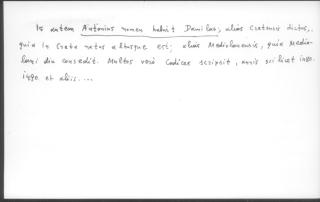 Is autem Antonius nomen habuit Damilas, alias Cretensis dictus,
quia in Creta natus altusque est; alias Mediolanensis, quia Medio-
lani diu consedit. Multos vero Codices scripsit, annis scilicet 1480.
1490. et aliis....